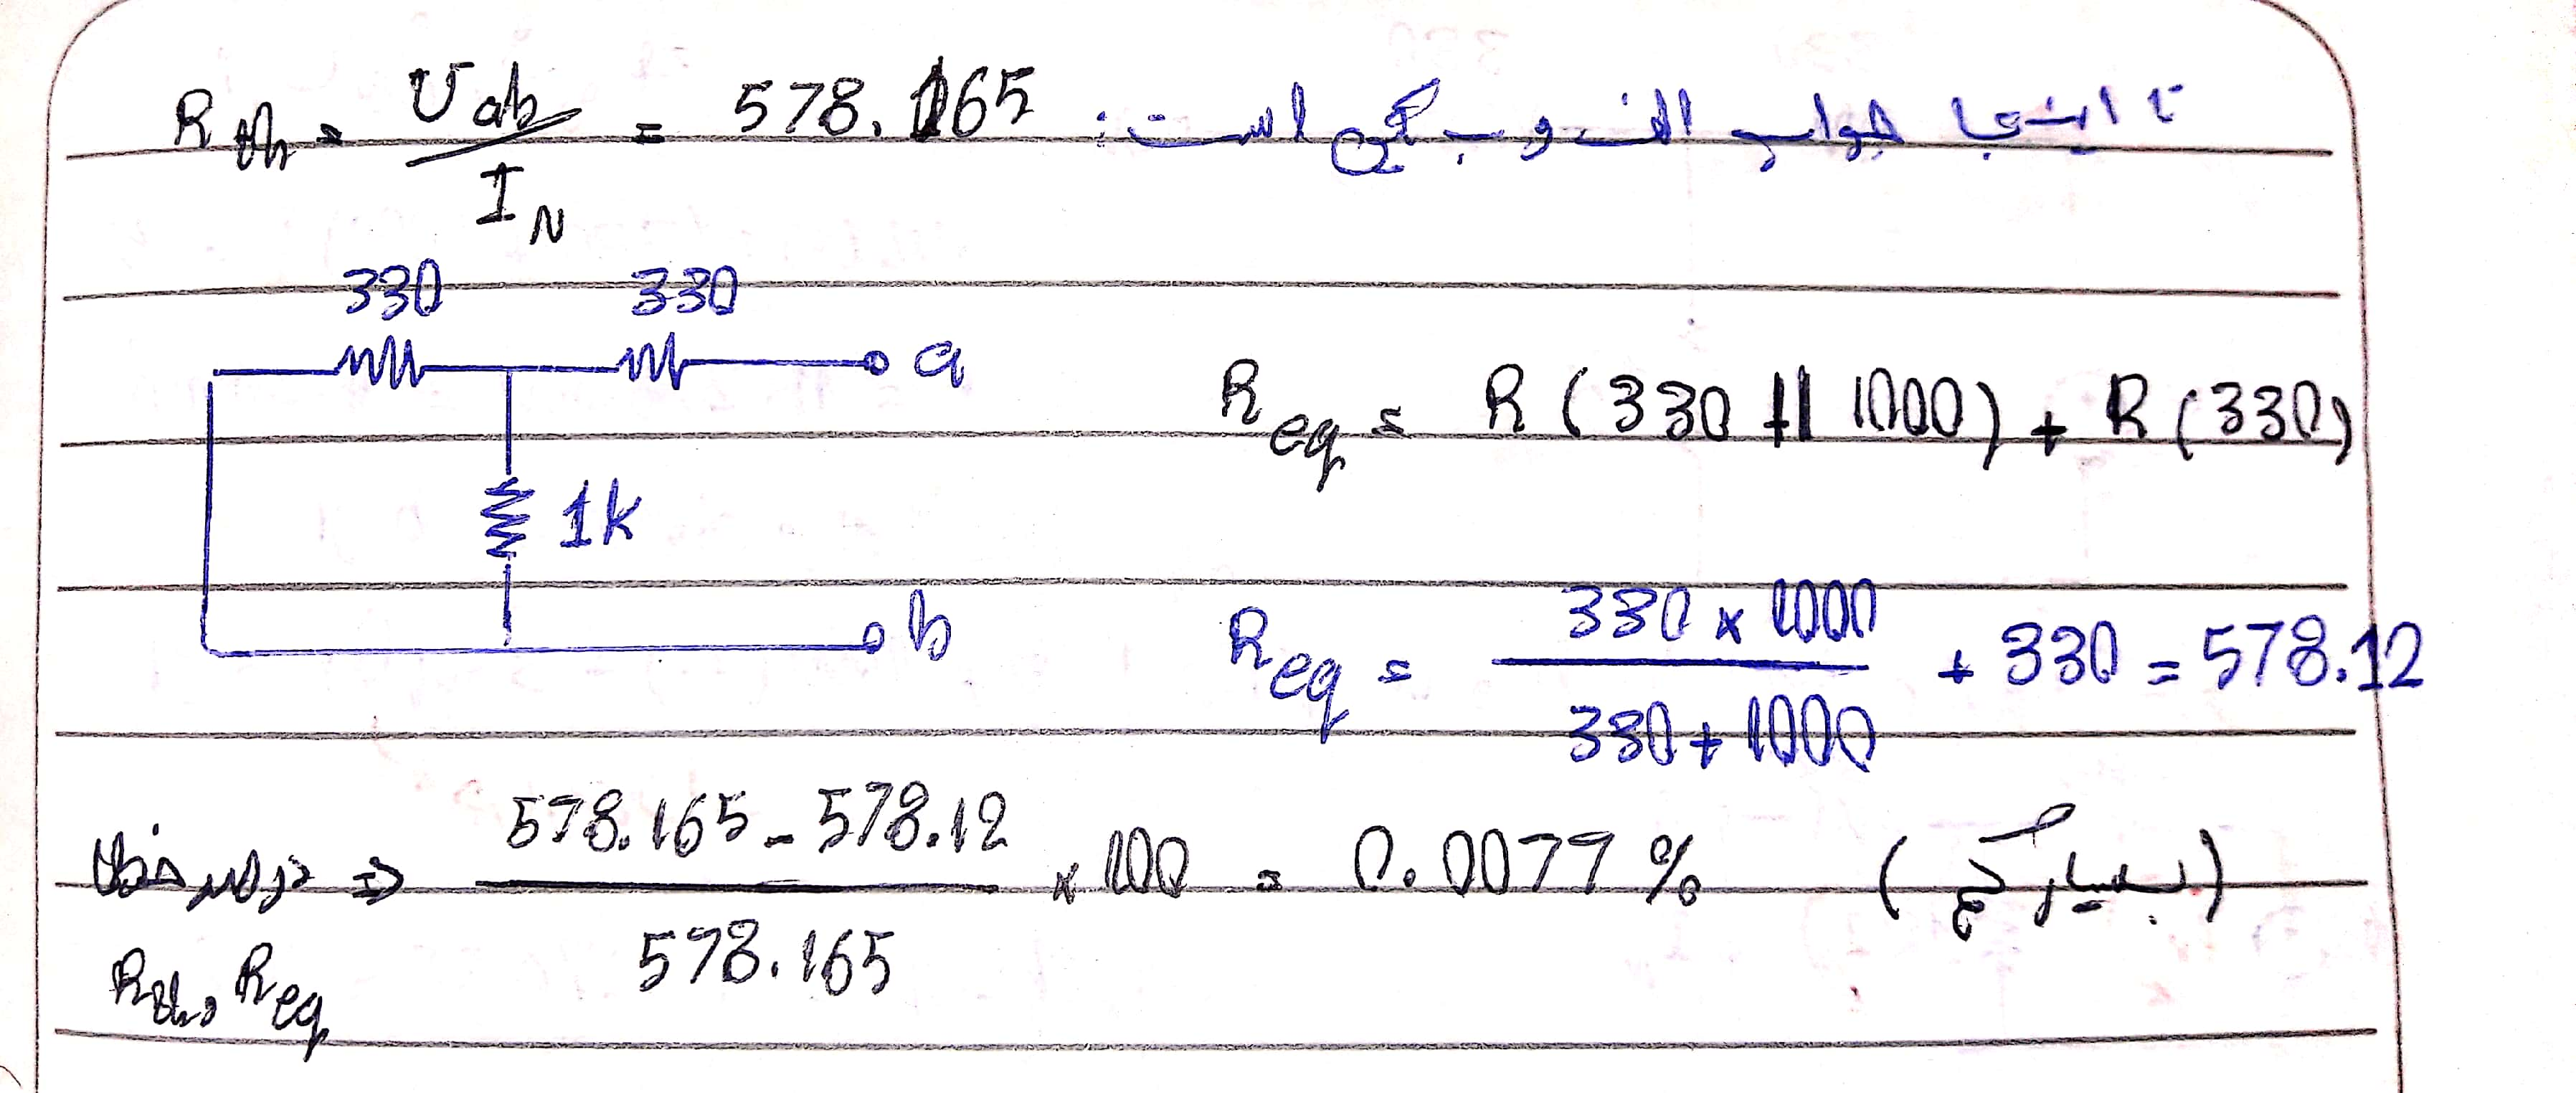 R th = Uab / IN = 578.165 تا اینجا جواب الف و ب و ج است:
330 330
a
R eq = R (330 || 1000) + R (330)
1k
b
R eq = 330 × 1000 / 330 + 1000 + 330 = 578.12
درصد خطا => 578.165 - 578.12 / 578.165 × 100 = 0.0077 % (بسیار کم)
Rth, Req